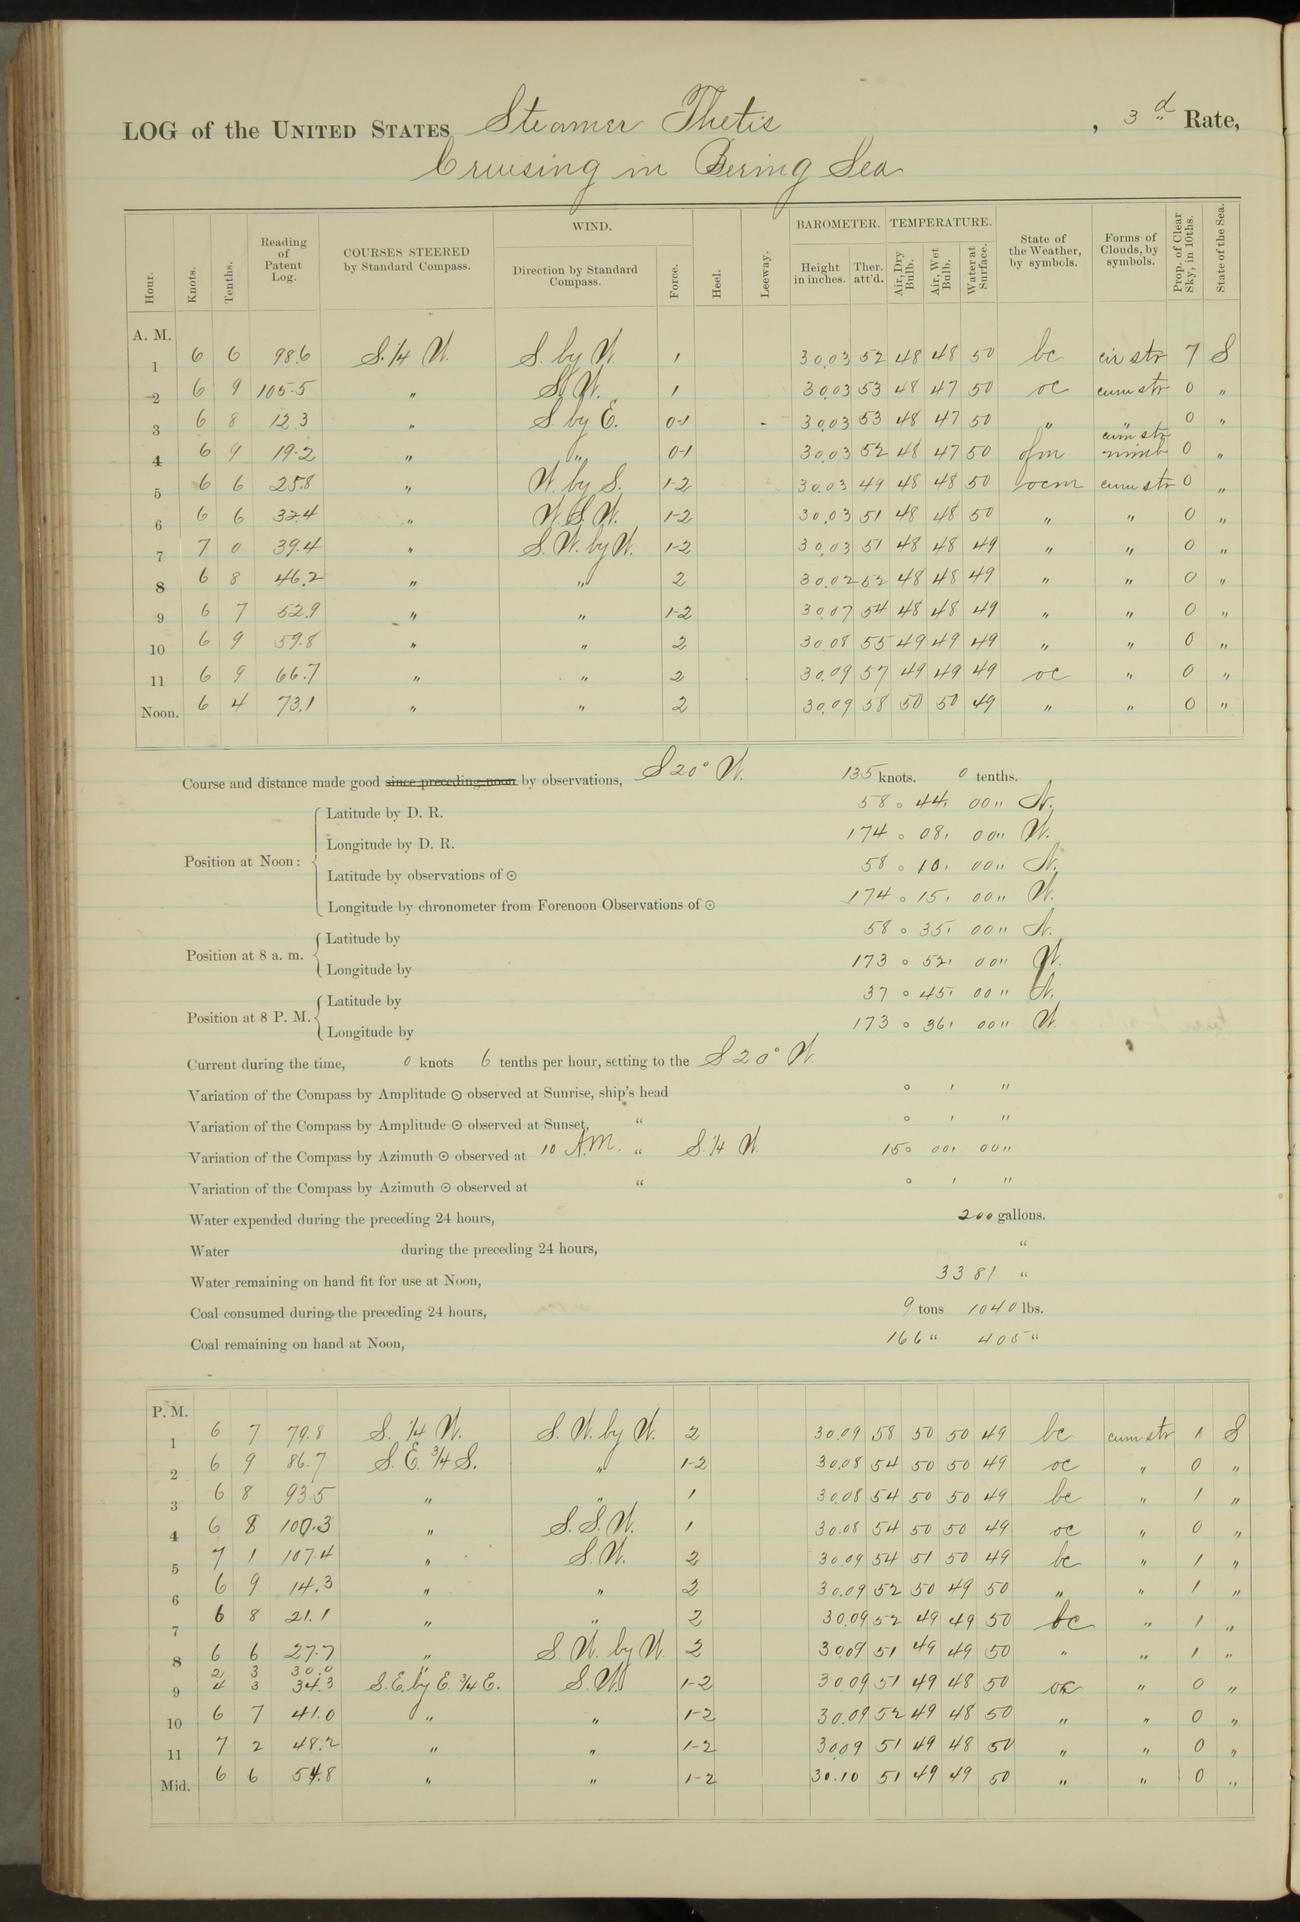 LOG of the UNITED STATES Steamer Thetis, 3d Rate,
Cruising in Bering Sea
Hour. Knots. Tenths. Reading of Patent Log. COURSES STEERED by Standard Compass. WIND. Direction by Standard Compass. Force. Heel. Leeway. BAROMETER. Height in inches. Ther. att'd. TEMPERATURE. Air, Dry Bulb. Air, Wet Bulb. Water at Surface. State of the Weather, by symbols. Forms of Clouds, by symbols. Prop. of Clear Sky, in 10ths. State of the Sea.
A. M.
1 6 6 98.6 S. 1/4 W. S. by W. 1 30.03 52 48 48 50 bc cir str 7 S
2 6 9 105.5 " S.W. 1 30.03 53 48 47 50 oc cum str 0 "
3 6 8 12.3 " S. by E. 0-1 30.03 53 48 47 50 " " 0 "
4 6 9 19.2 " " 0-1 30.03 52 48 47 50 ofm cum str nimb 0 "
5 6 6 25.8 " W. by S. 1-2 30.03 49 48 48 50 ocm cum str 0 "
6 6 6 32.4 " W.S.W. 1-2 30.03 51 48 48 50 " " 0 "
7 7 0 39.4 " S.W. by W. 1-2 30.03 51 48 48 49 " " 0 "
8 6 8 46.2 " " 2 30.02 52 48 48 49 " " 0 "
9 6 7 52.9 " " 1-2 30.07 54 48 48 49 " " 0 "
10 6 9 59.8 " " 2 30.08 55 49 49 49 " " 0 "
11 6 9 66.7 " " 2 30.09 57 49 49 49 oc " 0 "
Noon. 6 4 73.1 " " 2 30.09 58 50 50 49 " " 0 "
Course and distance made good since preceding noon by observations, S 20° W. 135 knots. 0 tenths.
Position at Noon: Latitude by D. R. 58° 44' 00" N.
Longitude by D. R. 174° 08' 00" W.
Latitude by observations of ⊙ 58° 10' 00" N.
Longitude by chronometer from Forenoon Observations of ⊙ 174° 15' 00" W.
Position at 8 a. m. Latitude by 58° 35' 00" N.
Longitude by 173° 52' 00" W.
Position at 8 P. M. Latitude by 37° 45' 00" N.
Longitude by 173° 36' 00" W.
Current during the time, 0 knots 6 tenths per hour, setting to the S 20° W.
Variation of the Compass by Amplitude ⊙ observed at Sunrise, ship's head ° ' "
Variation of the Compass by Amplitude ⊙ observed at Sunset, " ° ' "
Variation of the Compass by Azimuth ⊙ observed at 10 A.M. " S. 1/4 W. 15° 00' 00"
Variation of the Compass by Azimuth ⊙ observed at " ° ' "
Water expended during the preceding 24 hours, 200 gallons.
Water during the preceding 24 hours, "
Water remaining on hand fit for use at Noon, 3381 "
Coal consumed during the preceding 24 hours, 9 tons 1040 lbs.
Coal remaining on hand at Noon, 166 " 405 "
P. M.
1 6 7 79.8 S. 1/4 W. S. W. by W. 2 30.09 58 50 50 49 bc cum str 1 S
2 6 9 86.7 S. E. 3/4 S. " 1-2 30.08 54 50 50 49 oc " 0 "
3 6 8 93.5 " " 1 30.08 54 50 50 49 bc " 1 "
4 6 8 100.3 " S. S. W. 1 30.08 54 50 50 49 oc " 0 "
5 7 1 107.4 " S. W. 2 30.09 54 51 50 49 bc " 1 "
6 6 9 14.3 " " 2 30.09 52 50 49 50 " " 1 "
7 6 8 21.1 " " 2 30.09 52 49 49 50 bc " 1 "
8 6 6 27.7 " S. W. by W. 2 30.09 51 49 49 50 " " 1 "
2 3 30.0
9 4 3 34.3 S.E. by E. 3/4 E. S. W. 1-2 30.09 51 49 48 50 oc " 0 "
10 6 7 41.0 " " 1-2 30.09 52 49 48 50 " " 0 "
11 7 2 48.2 " " 1-2 30.09 51 49 48 50 " " 0 "
Mid. 6 6 54.8 " " 1-2 30.10 51 49 49 50 " " 0 "